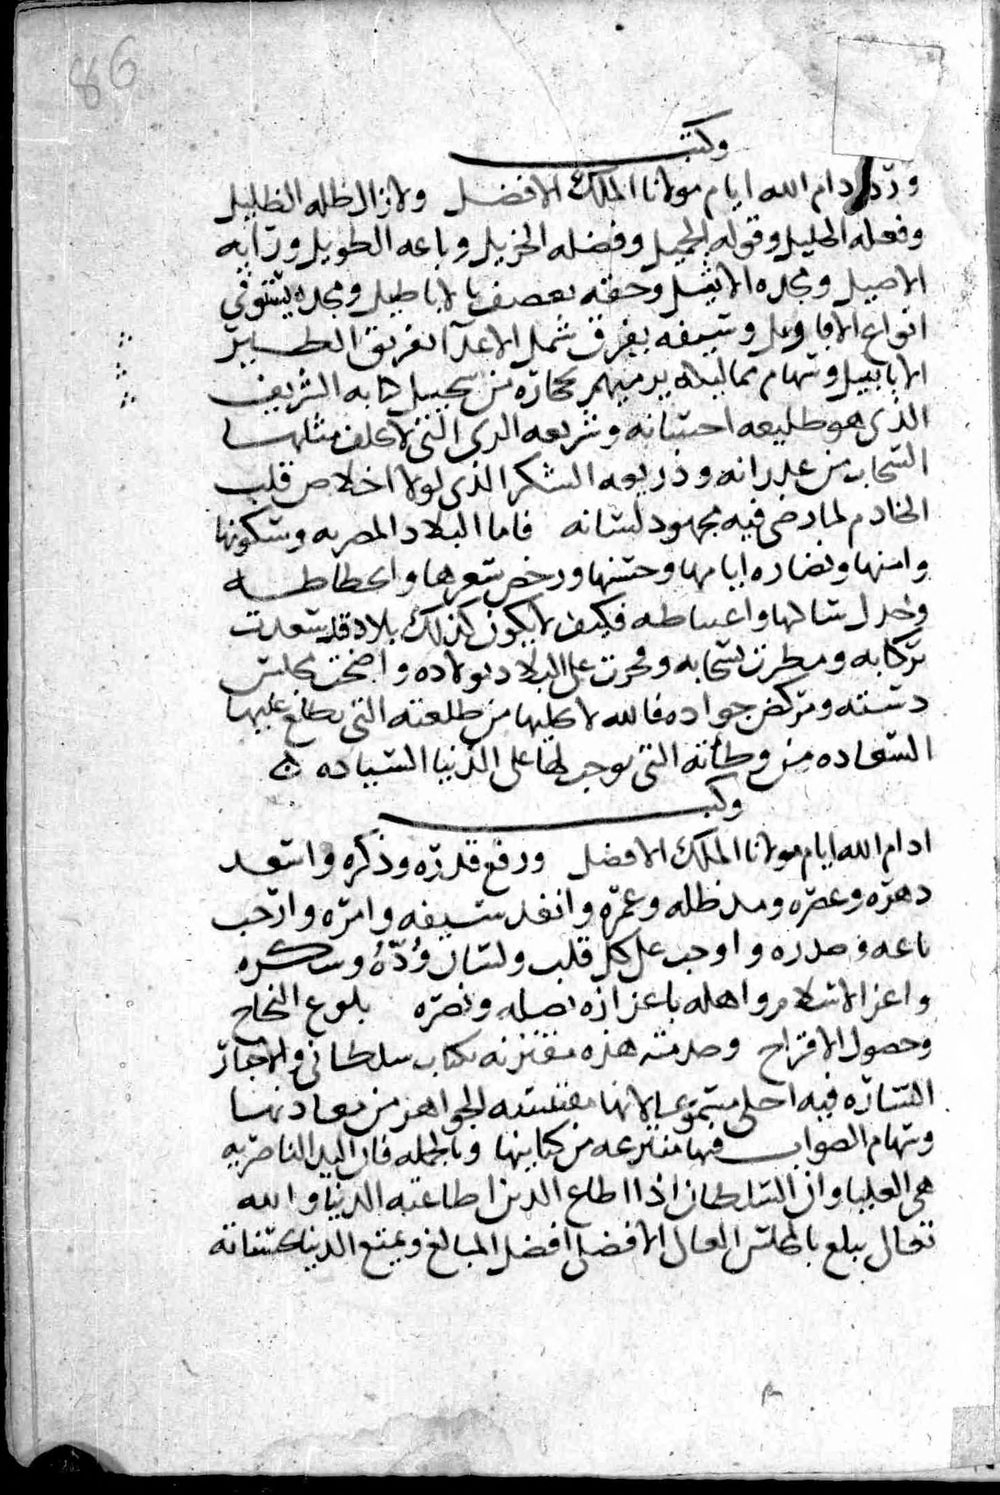 86
وكتب
ورد ادام الله ايام مولانا الملك الافضل ولازال ظله الظليل
وفعله الجليل وقوله الجميل وفضله الجزيل وباعه الطويل ورايه
الاصيل ومجده الاثيل وحقه يعصف بالاباطيل ومجده يستوفي
انواع الاقاويل وسيفه يفرق شمل الاعدآ تفريق الطير
الابابيل وسهام مماليكه يرميهم بحجارة من سجيل كتابه الشريف
الذي هو طليعه احسانه وشريعه الري التي لا تخلف مثلها
السحاب من غدرانه وذريعه الشكر الذي لولا اخلاص قلب
الخادم لما رضي فيه مجهود لسانه فاما البلاد المصريه وسكونها
وامنها ونضاره ايامها وحسنها ورخص سعرها وانحطاطه
وجدل ساكنها واغتباطه فكيف لا يكون كذلك بلاد قد سعدت
بركابه ومطرت بسحابه وفخرت على البلاد بولاده واضحت مجلس
دسته ومركض جواده فالله لا يخليها من طلعته التي تطلع عليها
السعاده من وطأته التي توجب لها على الدنيا السياده ه
وكتب
ادام الله ايام مولانا الملك الافضل ورفع قدره وذكره واسعد
دهره وعصره ومد ظله وعمره وانفذ سيفه وامره وارحب
باعه وصدره واوجب على كل قلب ولسان وُدّهُ وشكره
واعز الاسلام واهله باعزازه نصله ونصره بلوغ النجاح
وحصول الاقتراح وخدمته هذه مقترنه بكتاب سلطاني والاخبار
السارّه فيه احلى مسموعا لانها مقتبسه الجواهر من معادنها
وسهام الصواب فيها منتزعه من كنايتها وبالجمله فان اليد الناصريه
هي العليا وان السلطان اذا اطاع الدين اطاعته الدنيا والله
تعالى يبلغ بالمجلس العالي الافضلي افضل المبالغ ويمتع الدنيا بحسناته